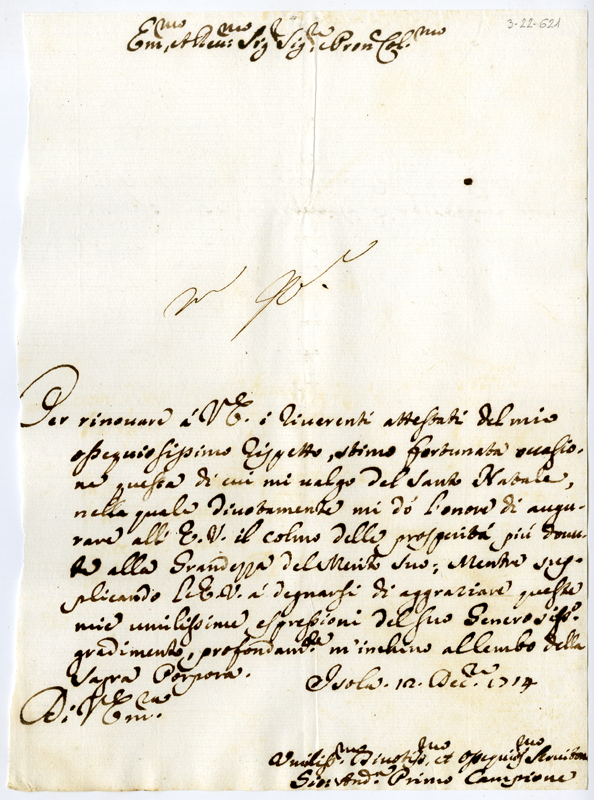 3-22-621
Em.mo, e Reu.mo Sig.r Sig.re, e Pron Col.mo
Per rinouare á V.E. i riuerenti attestati del mio
ossequiosissimo rispetto, stimo fortunata occasio-
ne questa di cui mi ualgo del Santo Natale,
nella quale diuotamente mi dó l'onore di augu-
rare all'E.V. il colmo delle prosperitá piú douu-
te alla Grandezza del Merito Suo; Mentre sup-
plicando l'E.V. á degnarsi di aggraziare queste
mie umilissime espressioni del suo Generosiss.o
gradimento, profondam.te m'inchino al lembo della
Sagra Porpora. Isola. 12. Dec.re 1714
Di V.Em.za
Vmiliss.mo Diuotiss.mo, et Ossequios.mo Seruitore
Gio: And.a Primo Campione